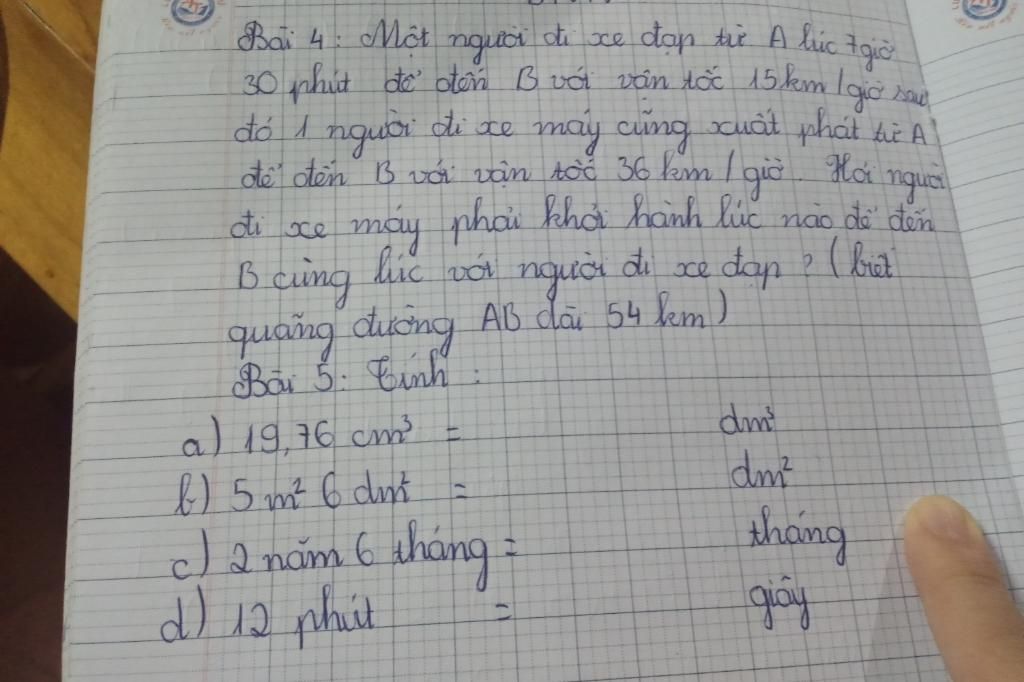 Bài 4: Một người đi xe đạp từ A lúc 7 giờ
30 phút để đến B với vân tốc 15 km/giờ sau
đó 1 người đi xe máy cũng xuất phát từ A
để đến B với vận tốc 36 km/giờ. Hỏi người
đi xe máy phải khởi hành lúc nào để đến
B cùng lúc với người đi xe đạp? (biết
quãng đường AB dài 54 km)
Bài 5: Tính:
a) 19,76 cm³ = dm³
b) 5 m² 6 dm² = dm²
c) 2 năm 6 tháng = tháng
d) 12 phút = giây